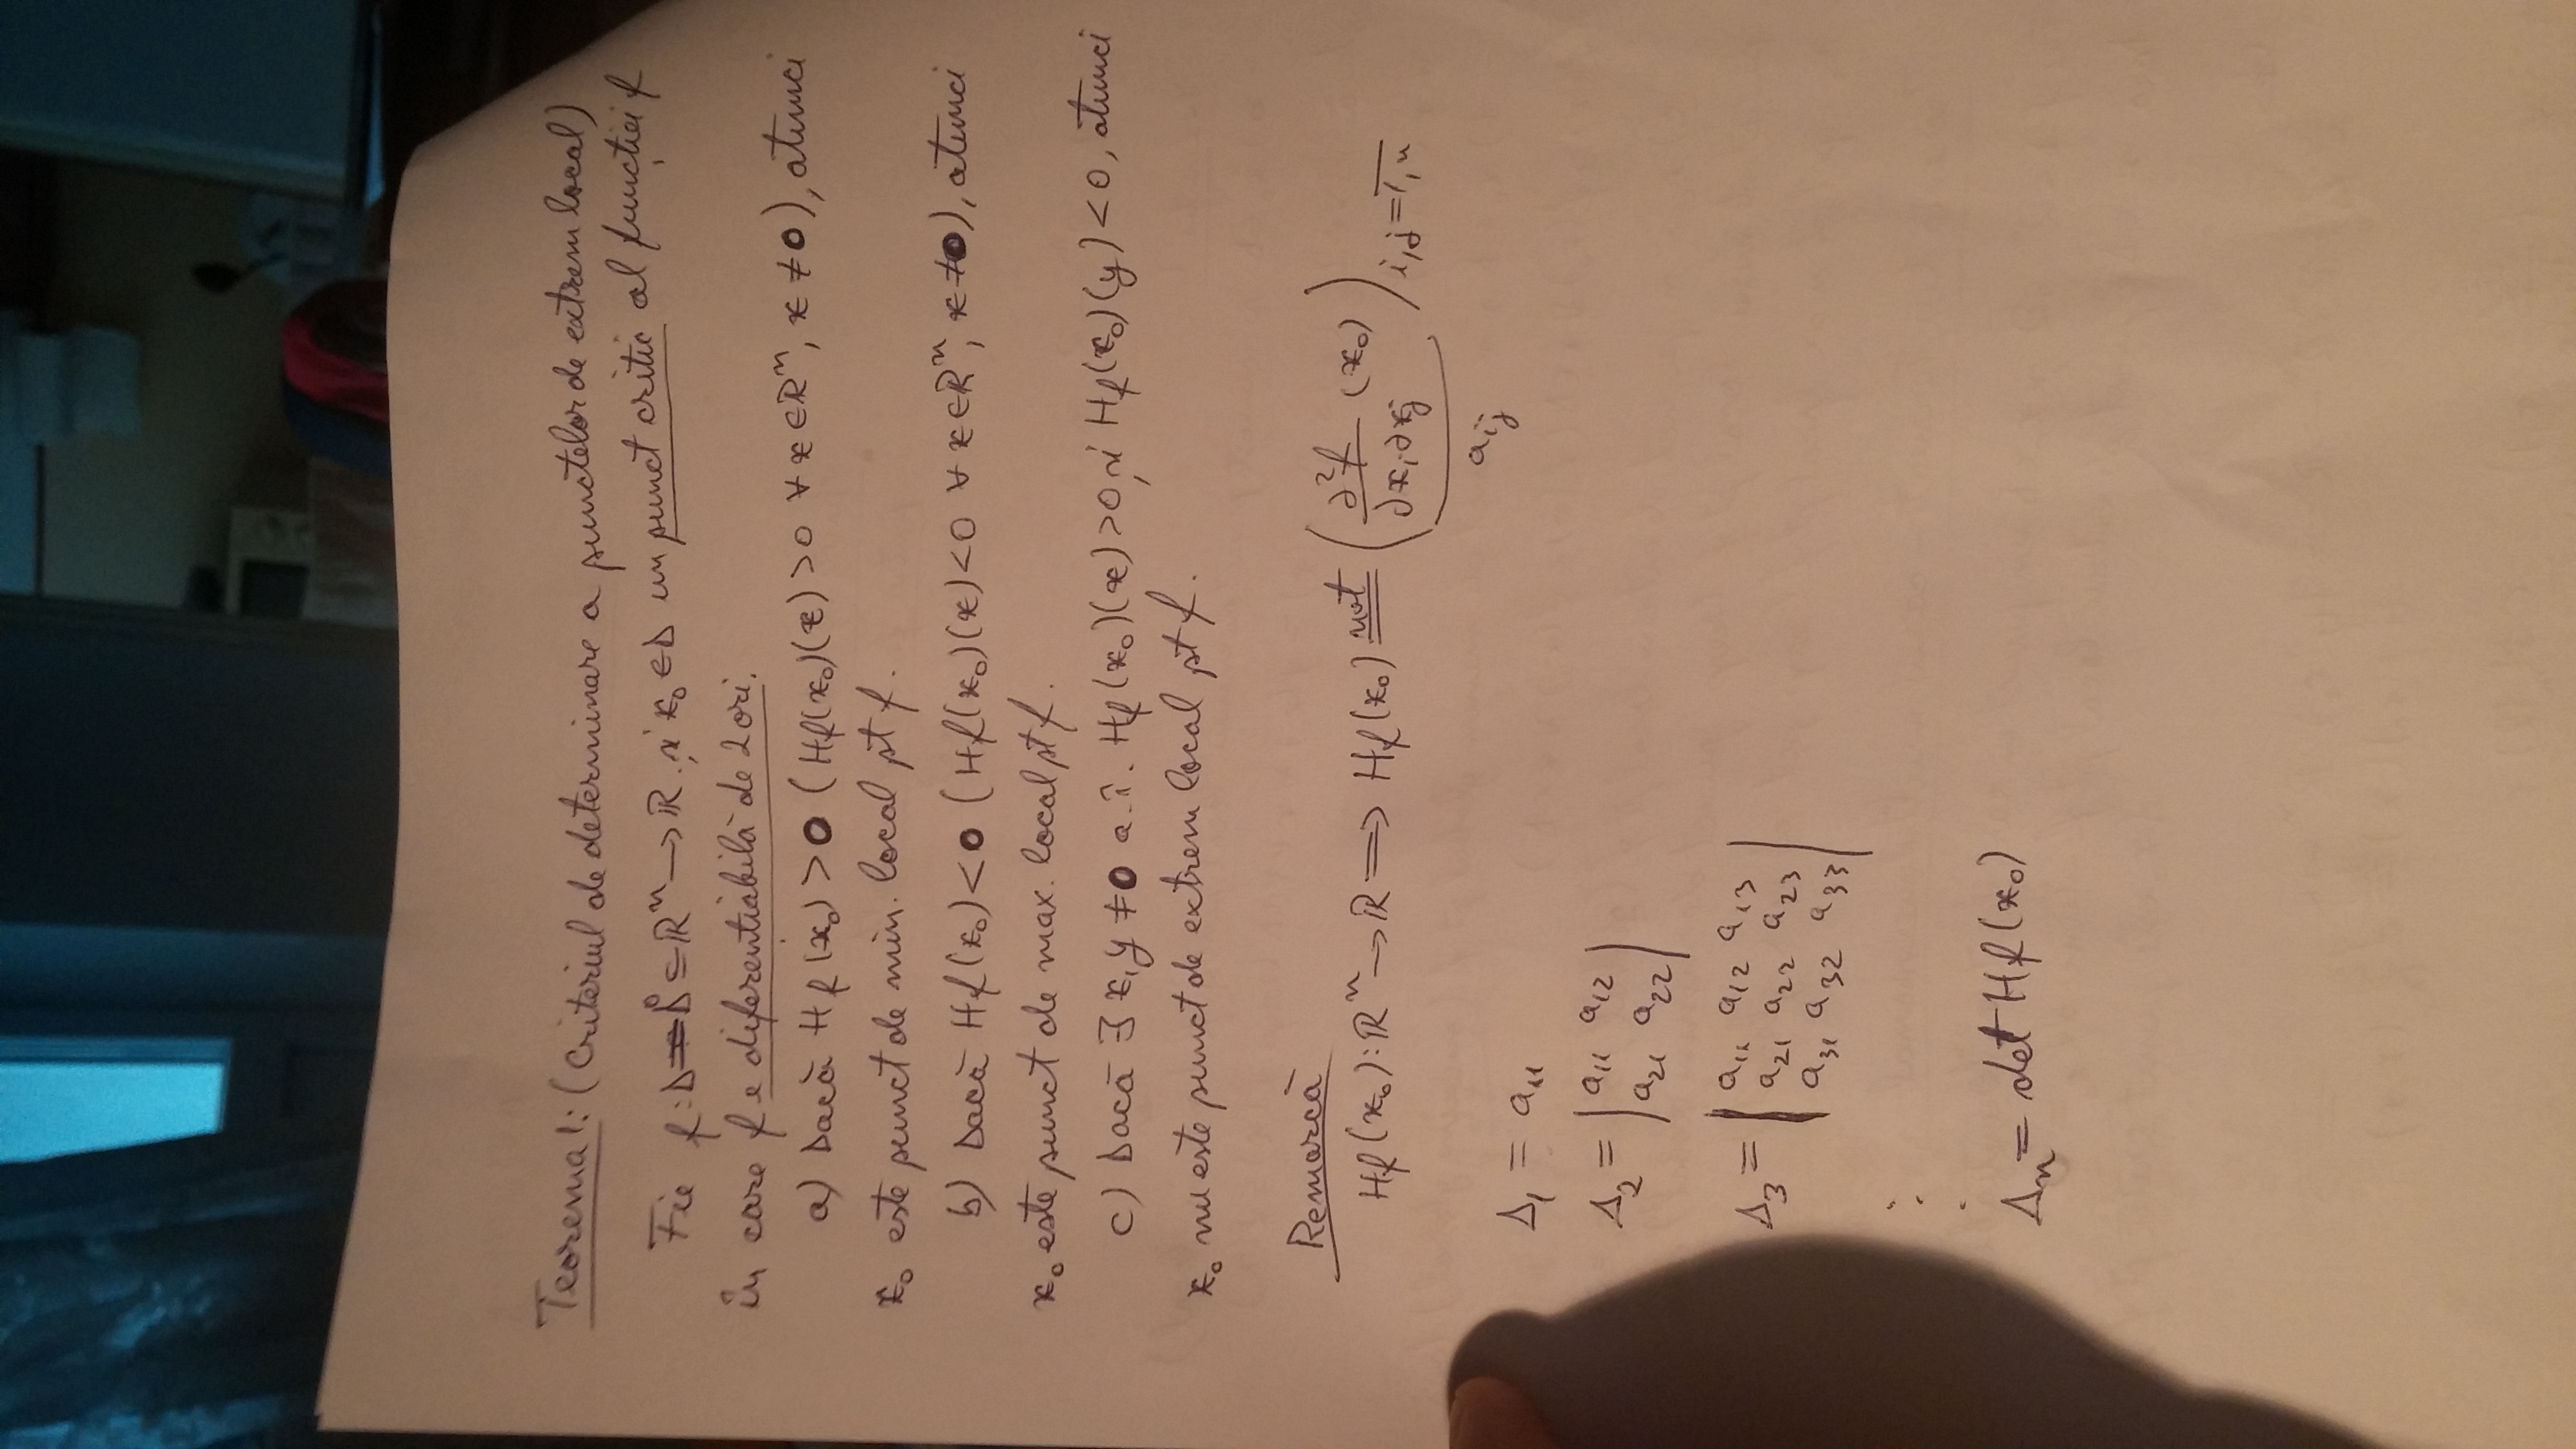 Teorema!: (Criteriul de determinare a punctelor de extrem local)
Fie f: D = D̊ ⊆ ℝⁿ → ℝ și x₀ ∈ D un punct critic al funcției f
în care f e diferentiabilă de 2 ori.
a) Dacă Hf(x₀) > 0 (Hf(x₀)(x) > 0 ∀ x ∈ ℝⁿ, x ≠ 0), atunci
x₀ este punct de min. local pt f.
b) Dacă Hf(x₀) < 0 (Hf(x₀)(x) < 0 ∀ x ∈ ℝⁿ, x ≠ 0), atunci
x₀ este punct de max. local pt f.
c) Dacă ∃ x, y ≠ 0 a.î. Hf(x₀)(x) > 0 și Hf(x₀)(y) < 0, atunci
x₀ nu este punct de extrem local pt f.
Remarcă
Hf(x₀): ℝⁿ → ℝ ⟹ Hf(x₀) not= (∂²f/∂xᵢ∂xⱼ (x₀)) i,j=1,n
aᵢⱼ
Δ₁ = a₁₁
Δ₂ = | a₁₁ a₁₂ |
| a₂₁ a₂₂ |
Δ₃ = | a₁₁ a₁₂ a₁₃ |
| a₂₁ a₂₂ a₂₃ |
| a₃₁ a₃₂ a₃₃ |
⋮
Δₙ = det Hf(x₀)